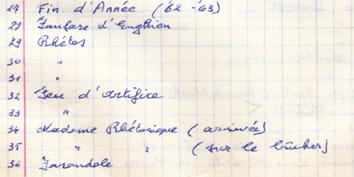 27 Fin d'Année (62-'63)
28 Fanfare d'Enghien
29 Rhétos
30 "
31 "
32 Feu d'artifice
33 "
34 Madame Rhétorique (arrivée)
35 " " (sur le bûcher)
36 Farandole